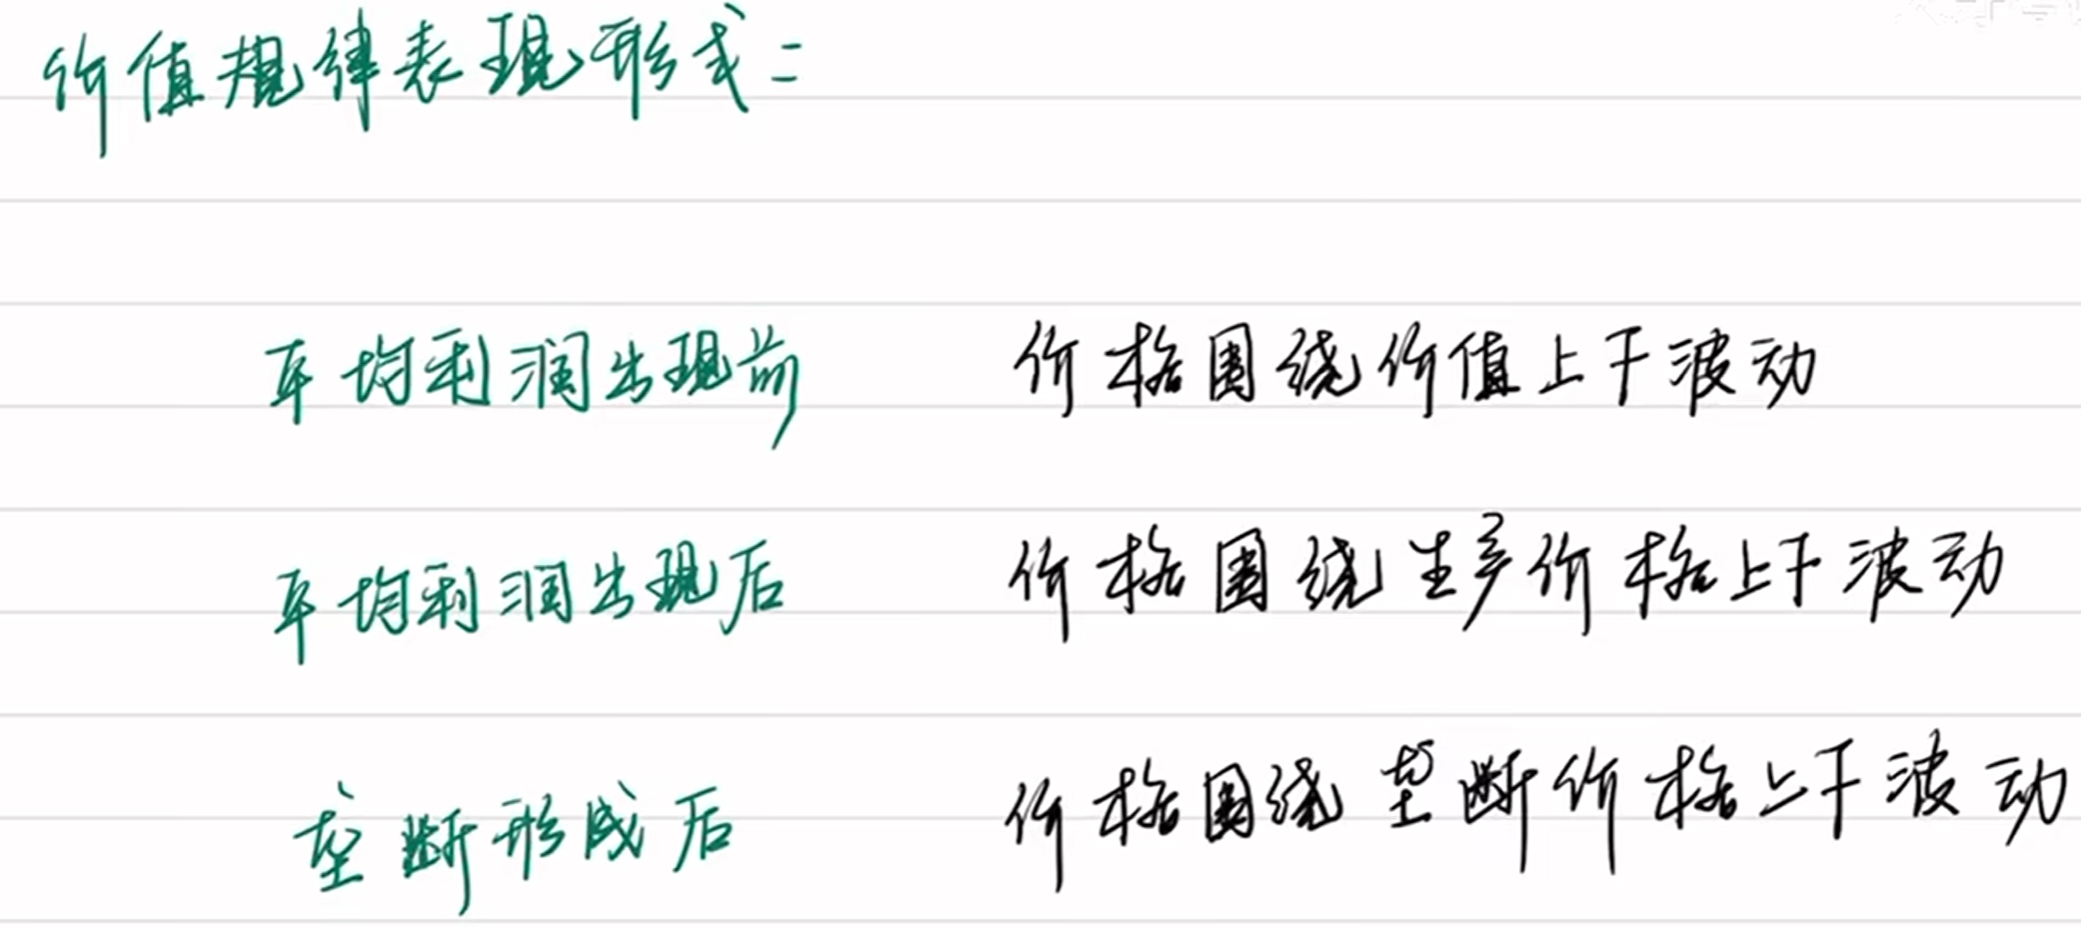 价值规律表现形式：
平均利润出现前 价格围绕价值上下波动
平均利润出现后 价格围绕生产价格上下波动
垄断形成后 价格围绕垄断价格上下波动